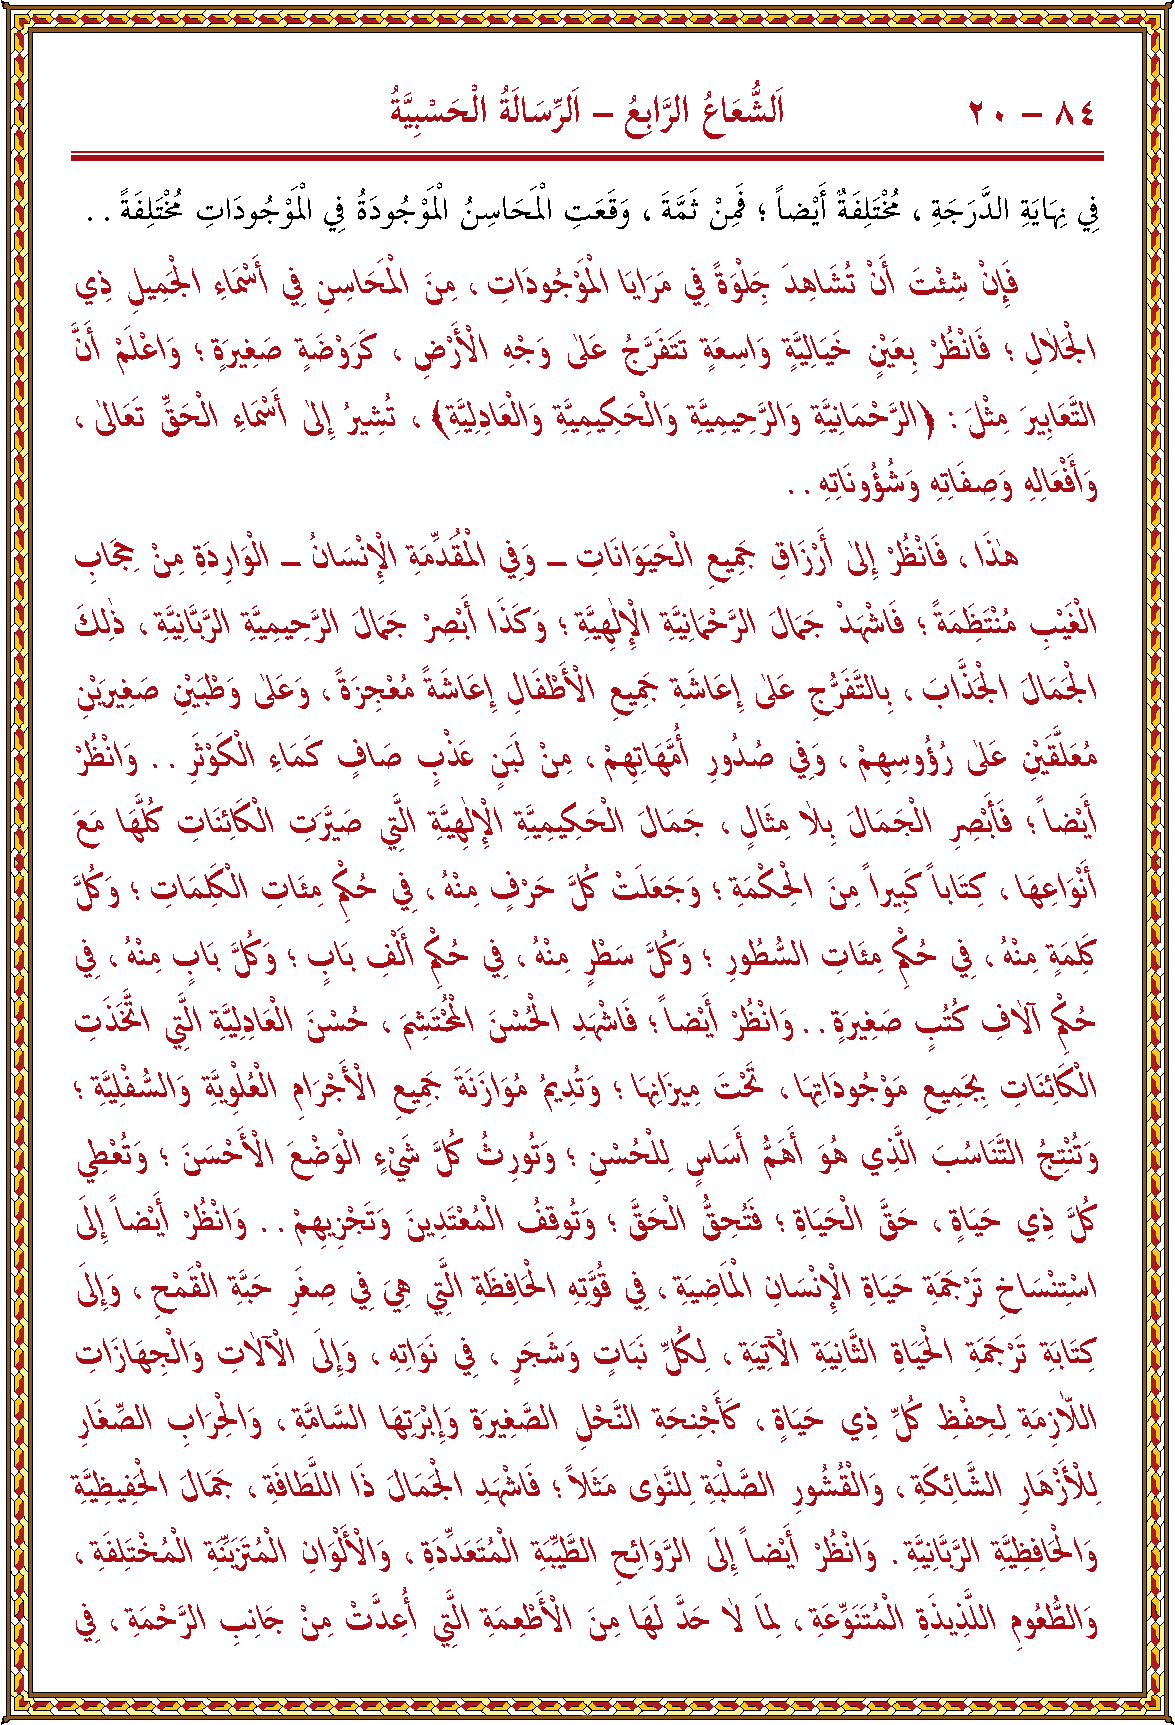 ٨٤ – ٢٠ اَلشُّعَاعُ الرَّابِعُ – اَلرِّسَالَةُ الْحَسْبِيَّةُ
فِي نِهَايَةِ الدَّرَجَةِ ، مُخْتَلِفَةٌ أَيْضاً ؛ فَمِنْ ثَمَّةَ ، وَقَعَتِ الْمَحَاسِنُ الْمَوْجُودَةُ فِي الْمَوْجُودَاتِ مُخْتَلِفَةً . .
فَإِنْ شِئْتَ أَنْ تُشَاهِدَ جِلْوَةً فِي مَرَايَا الْمَوْجُودَاتِ ، مِنَ الْمَحَاسِنِ فِي أَسْمَاءِ الْجَمِيلِ ذِي
الْجَلَالِ ؛ فَانْظُرْ بِعَيْنٍ خَيَالِيَّةٍ وَاسِعَةٍ تَتَفَرَّجُ عَلٰى وَجْهِ الْأَرْضِ ، كَرَوْضَةٍ صَغِيرَةٍ ؛ وَاعْلَمْ أَنَّ
التَّعَابِيرَ مِثْلَ : ﴿الرَّحْمَانِيَّةِ وَالرَّحِيمِيَّةِ وَالْحَكِيمِيَّةِ وَالْعَادِلِيَّةِ﴾ ، تُشِيرُ إِلٰى أَسْمَاءِ الْحَقِّ تَعَالٰى ،
وَأَفْعَالِهِ وَصِفَاتِهِ وَشُؤُونَاتِهِ . .
هٰذَا ، فَانْظُرْ إِلٰى أَرْزَاقِ جَمِيعِ الْحَيَوَانَاتِ – وَفِي الْمُقَدِّمَةِ الْإِنْسَانُ – الْوَارِدَةِ مِنْ حِجَابِ
الْغَيْبِ مُنْتَظَمَةً ؛ فَاشْهَدْ جَمَالَ الرَّحْمَانِيَّةِ الْإِلٰهِيَّةِ ؛ وَكَذَا أَبْصِرْ جَمَالَ الرَّحِيمِيَّةِ الرَّبَّانِيَّةِ ، ذٰلِكَ
الْجَمَالَ الْجَذَّابَ ، بِالتَّفَرُّجِ عَلٰى إِعَاشَةِ جَمِيعِ الْأَطْفَالِ إِعَاشَةً مُعْجِزَةً ، وَعَلٰى وَطْبَيْنِ صَغِيرَيْنِ
مُعَلَّقَيْنِ عَلٰى رُؤُوسِهِمْ ، وَفِي صُدُورِ أُمَّهَاتِهِمْ ، مِنْ لَبَنٍ عَذْبٍ صَافٍ كَمَاءِ الْكَوْثَرِ . . وَانْظُرْ
أَيْضاً ؛ فَأَبْصِرِ الْجَمَالَ بِلَا مِثَالٍ ، جَمَالَ الْحَكِيمِيَّةِ الْإِلٰهِيَّةِ الَّتِي صَيَّرَتِ الْكَائِنَاتِ كُلَّهَا مَعَ
أَنْوَاعِهَا ، كِتَاباً كَبِيراً مِنَ الْحِكْمَةِ ؛ وَجَعَلَتْ كُلَّ حَرْفٍ مِنْهُ ، فِي حُكْمِ مِئَاتِ الْكَلِمَاتِ ؛ وَكُلَّ
كَلِمَةٍ مِنْهُ ، فِي حُكْمِ مِئَاتِ السُّطُورِ ؛ وَكُلَّ سَطْرٍ مِنْهُ ، فِي حُكْمِ أَلْفِ بَابٍ ؛ وَكُلَّ بَابٍ مِنْهُ ، فِي
حُكْمِ آلَافِ كُتُبٍ صَغِيرَةٍ . . وَانْظُرْ أَيْضاً ؛ فَاشْهَدِ الْحُسْنَ الْمُحْتَشِمَ ، حُسْنَ الْعَادِلِيَّةِ الَّتِي اتَّخَذَتِ
الْكَائِنَاتِ بِجَمِيعِ مَوْجُودَاتِهَا ، تَحْتَ مِيزَانِهَا ؛ وَتُدِيمُ مُوَازَنَةَ جَمِيعِ الْأَجْرَامِ الْعُلْوِيَّةِ وَالسُّفْلِيَّةِ ؛
وَتُنْتِجُ التَّنَاسُبَ الَّذِي هُوَ أَهَمُّ أَسَاسٍ لِلْحُسْنِ ؛ وَتُورِثُ كُلَّ شَيْءٍ الْوَضْعَ الْأَحْسَنَ ؛ وَتُعْطِي
كُلَّ ذِي حَيَاةٍ ، حَقَّ الْحَيَاةِ ؛ فَتُحِقُّ الْحَقَّ ؛ وَتُوقِفُ الْمُعْتَدِينَ وَتَجْزِيهِمْ . . وَانْظُرْ أَيْضاً إِلَى
اسْتِنْسَاخِ تَرْجَمَةِ حَيَاةِ الْإِنْسَانِ الْمَاضِيَةِ ، فِي قُوَّتِهِ الْحَافِظَةِ الَّتِي هِيَ فِي صِغَرِ حَبَّةِ الْقَمْحِ ، وَإِلَى
كِتَابَةِ تَرْجَمَةِ الْحَيَاةِ الثَّانِيَةِ الْآتِيَةِ ، لِكُلِّ نَبَاتٍ وَشَجَرٍ ، فِي نَوَاتِهِ ، وَإِلَى الْآلَاتِ وَالْجِهَازَاتِ
اللَّازِمَةِ لِحِفْظِ كُلِّ ذِي حَيَاةٍ ، كَأَجْنِحَةِ النَّحْلِ الصَّغِيرَةِ وَإِبْرَتِهَا السَّامَّةِ ، وَالْحِرَابِ الصِّغَارِ
لِلْأَزْهَارِ الشَّائِكَةِ ، وَالْقُشُورِ الصَّلْبَةِ لِلنَّوٰى مَثَلاً ؛ فَاشْهَدِ الْجَمَالَ ذَا اللَّطَافَةِ ، جَمَالَ الْحَفِيظِيَّةِ
وَالْحَافِظِيَّةِ الرَّبَّانِيَّةِ . وَانْظُرْ أَيْضاً إِلَى الرَّوَائِحِ الطَّيِّبَةِ الْمُتَعَدِّدَةِ ، وَالْأَلْوَانِ الْمُتَزَيِّنَةِ الْمُخْتَلِفَةِ ،
وَالطُّعُومِ اللَّذِيذَةِ الْمُتَنَوِّعَةِ ، لِمَا لَا حَدَّ لَهَا مِنَ الْأَطْعِمَةِ الَّتِي أُعِدَّتْ مِنْ جَانِبِ الرَّحْمَةِ ، فِي